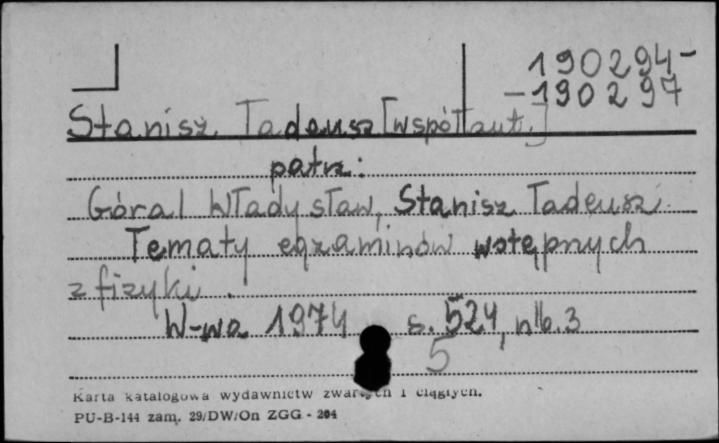 190294-
-190297
Stanisz Tadeusz [współaut.]
patrz:
Góral Władysław, Stanisz Tadeusz.
Tematy egzaminów wstępnych
z fizyki.
W-wa 1974 s. 524, nlb. 3
5
Karta katalogowa wydawnictw zwartych i ciągłych.
PU-B-144 zam. 29/DW/On ZGG - 204